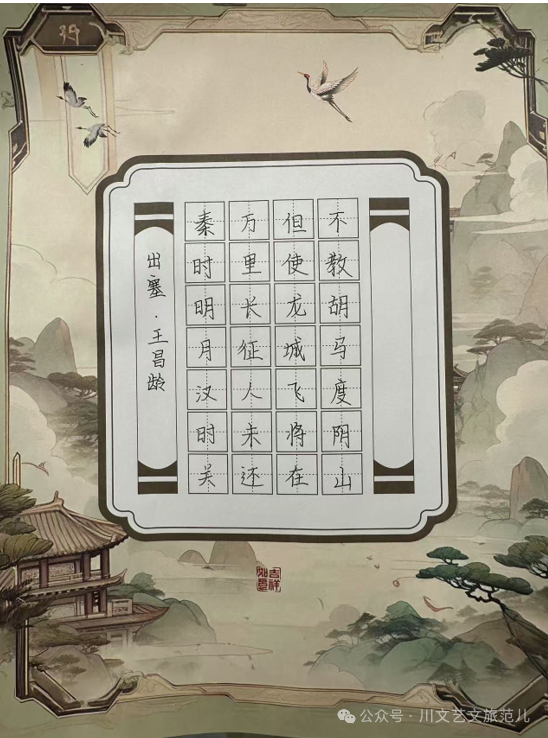 出塞·王昌龄
秦时明月汉时吴
万里长征人未还
但使龙城飞将在
不教胡马度阴山
吉祥
如意
公众号·川文艺文旅范儿